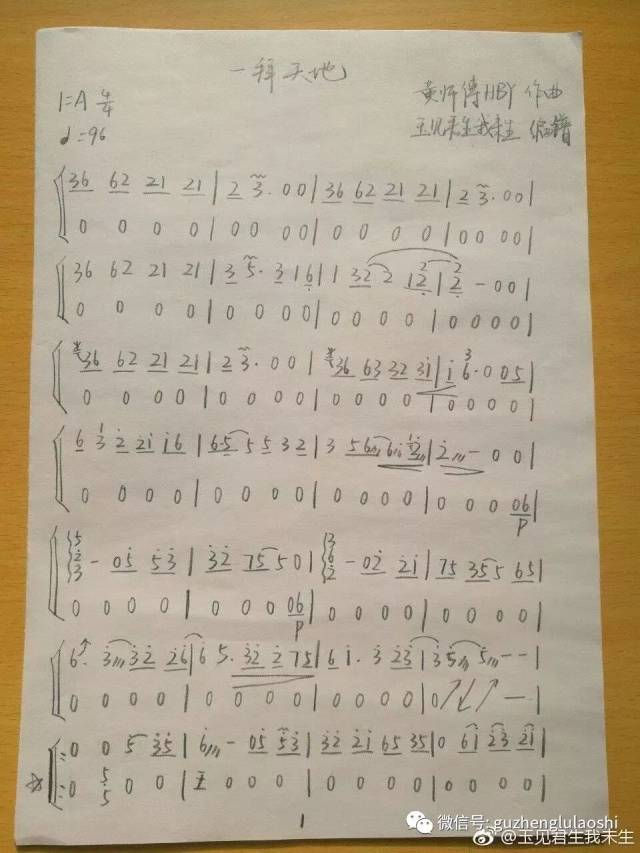 一拜天地
1=A 4/4
黄师傅HBY 作曲
♩=96
玉见君生我未生 编谱
36 62 21 21 | 2 3· 0 0 | 36 62 21 21 | 2 3· 0 0 |
0 0 0 0 | 0 0 0 0 | 0 0 0 0 | 0 0 0 0 |
36 62 21 21 | 3 5· 3 1 6 | 1 32 2 12 | 2 - 0 0 |
0 0 0 0 | 0 0 0 0 | 0 0 0 0 | 0 0 0 0 |
36 62 21 21 | 2 3· 0 0 | 36 63 32 31 | 1 6· 0 05 |
0 0 0 0 | 0 0 0 0 | 0 0 0 0 | 0 0 0 0 |
6 13 2 21 16 | 65 5 5 3 2 | 3 56 61 12 | 2 - 0 0 |
0 0 0 0 | 0 0 0 0 | 0 0 0 0 | 0 0 0 06 |
P
5 2 3 - 05 53 | 32 75 5 0 | 3 6 2 - 02 21 | 75 35 5 65 |
0 0 0 0 | 0 0 0 06 | 0 0 0 0 | 0 0 0 0 |
P
6· 3 32 26 | 6 5· 32 2 75 | 6 1· 3 23 | 35 5 - - |
0 0 0 0 | 0 0 0 0 | 0 0 0 0 | 0 ↗ ↙ ↗ — |
0 0 5 35 | 6 - 05 53 | 32 21 65 35 | 0 61 23 21 |
0 5 5 0 0 | 0 0 0 | 0 0 0 0 | 0 0 0 0 |
1
微信号: guzhenglulaoshi
@玉见君生我未生